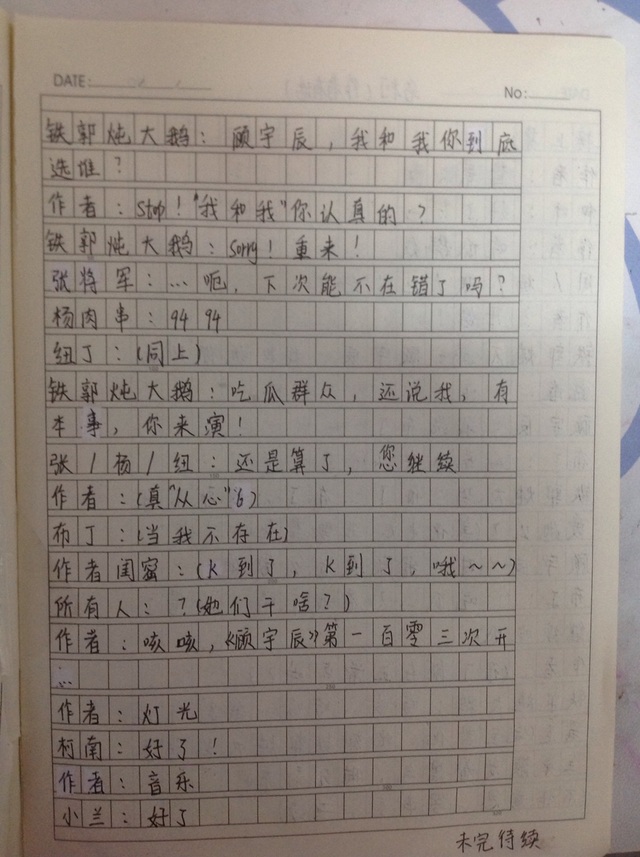 DATE:
No:
铁郭炖大鹅：顾宇辰，我和我你到底
选谁？
作者：stop！“我和我”你认真的？
铁郭炖大鹅：sorry！重来！
张将军：…呃，下次能不在错了吗？
杨肉串：94 94
纽丁：(同上)
铁郭炖大鹅：吃瓜群众，还说我，有
本事，你来演！
张/杨/纽：还是算了，您继续
作者：(真“从心”6)
布丁：(当我不存在)
作者闺蜜：(K到了，K到了，哦～～)
所有人：？(她们干啥？)
作者：咳咳，《顾宇辰》第一百零三次开
…
作者：灯光
柯南：好了！
作者：音乐
小兰：好了
未完待续